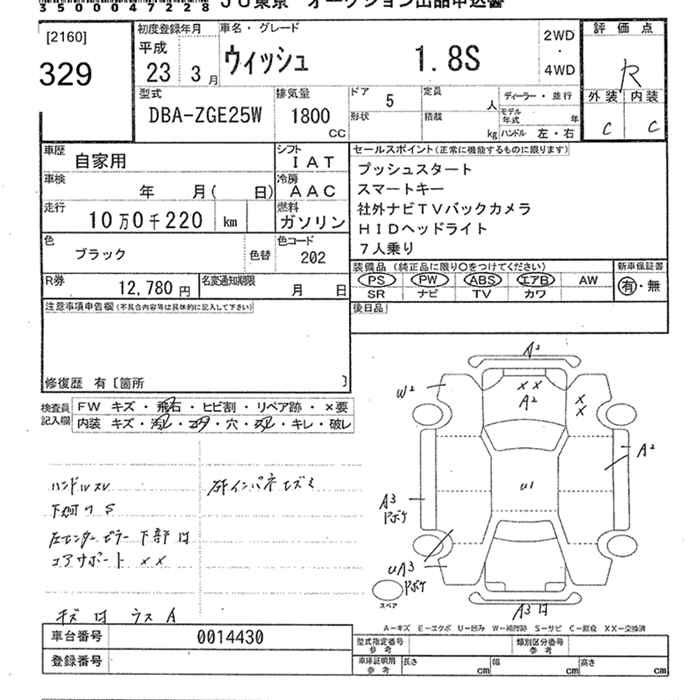 350004７228 ＪＵ東京 オークション出品申込書
[2160]
329
初度登録年月
平成
23 3 月
車名・グレード
ウィッシュ 1.8S
2WD
・
4WD
評価点
R
外装 内装
C C
型式
DBA-ZGE25W
排気量
1800
CC
ドア 5
定員 人
形状
積載 kg
ディーラー・並行
モデル年式 年
ハンドル 左・右
車歴
自家用
シフト
IAT
車検
年 月( 日)
冷房
AAC
走行
10万0千220 km
燃料
ガソリン
色
ブラック
色替
色コード
202
R券
12,780 円
名変通知期限
月 日
セールスポイント(正常に機能するものに限ります)
プッシュスタート
スマートキー
社外ナビTVバックカメラ
HIDヘッドライト
7人乗り
装備品 (純正品に限り○をつけてください)
PS PW ABS エアB AW
SR ナビ TV カワ
新車保証書
有・無
後日品
注意事項申告欄(不具合内容等は具体的に記入して下さい)
修復歴 有〔箇所 〕
検査員記入欄
FW キズ・飛石・ヒビ割・リペア跡・×要
内装 キズ・汚れ・コゲ・穴・スレ・キレ・破レ
ハンドルスレ
下廻りS
左センターピラー下部は
コアサポート ××
キズはウスA
A2
W2
××
A2
×
×
A2
U1
A3
Pボケ
UA3
Pボケ
A3は
スペア
A－キズ E－エクボ U－凹み W－補修跡 S－サビ C－腐蝕 XX－交換済
車台番号 0014430
登録番号
型式指定番号
参考
類別区分番号
参考
車庫証明用
参考
長さ cm 幅 cm 高さ cm